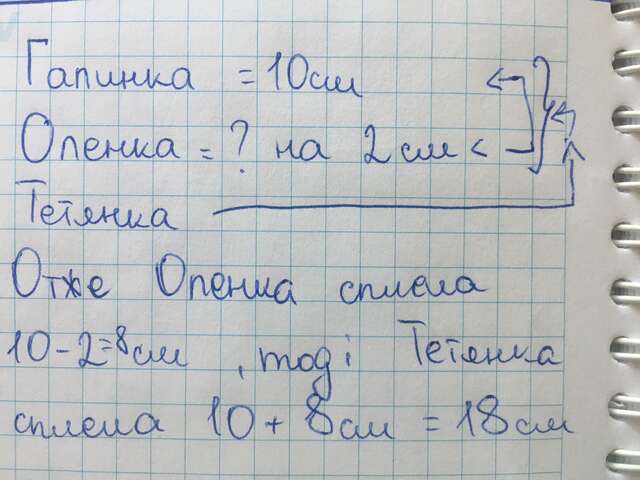 Галинка = 10см
Оленка = ? на 2см <
Тетянка
Отже Оленка сплела
10-2=8см , тоді Тетянка
сплела 10+8см = 18см